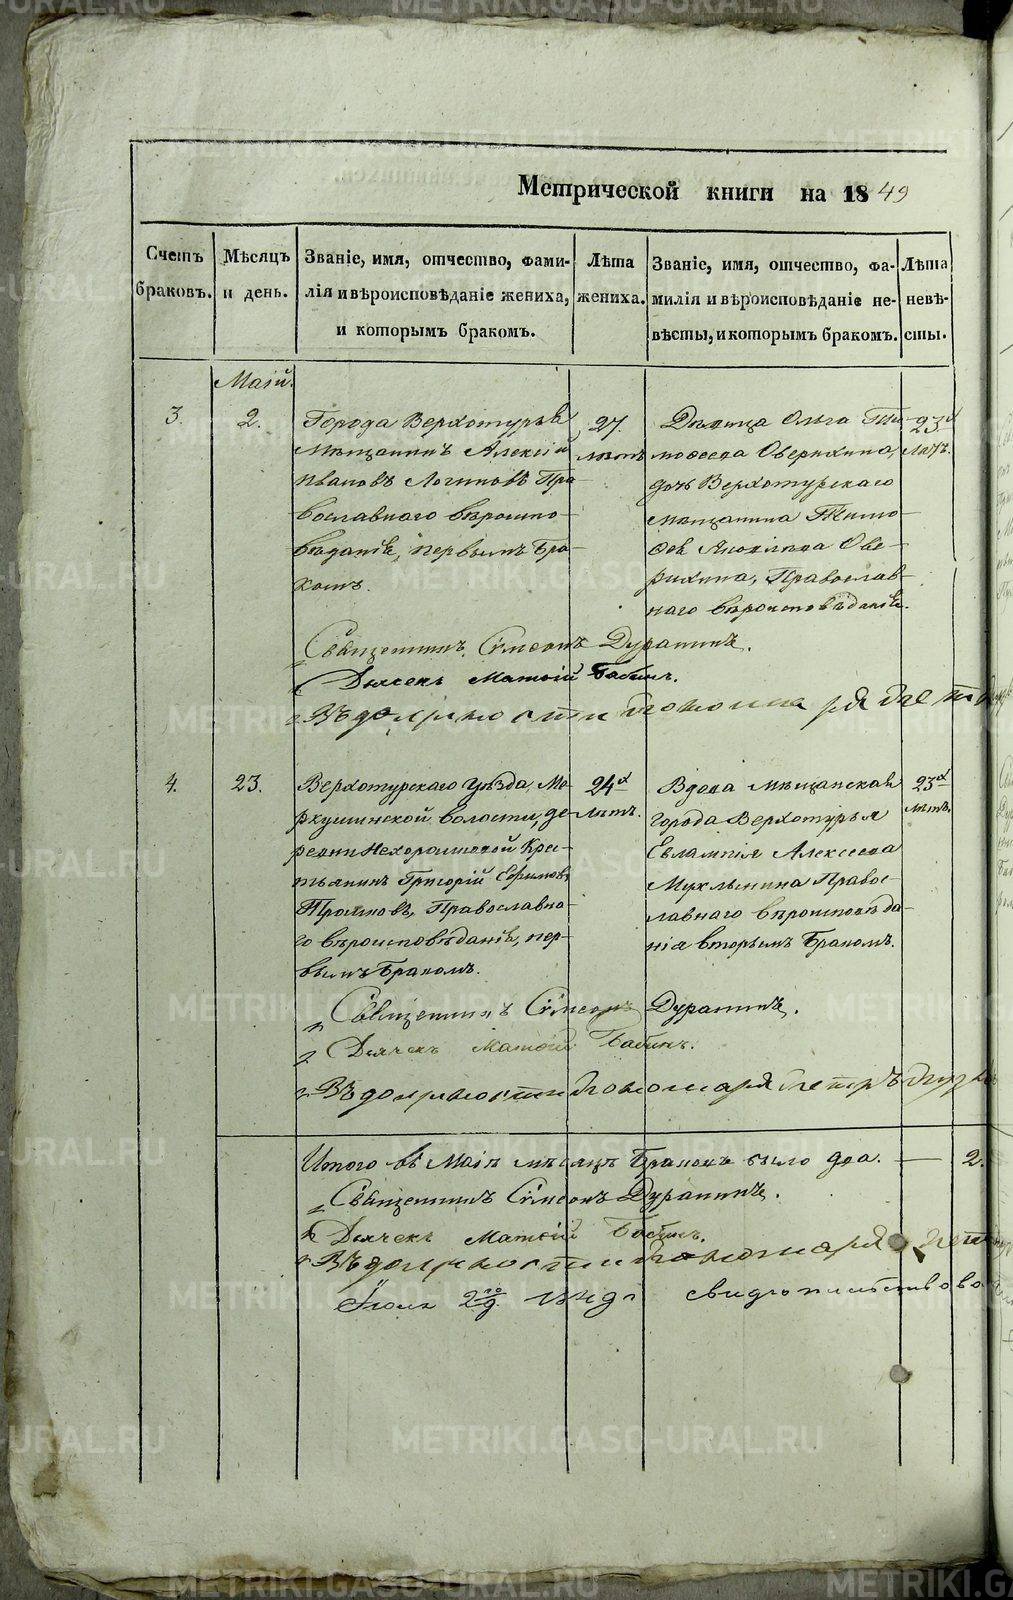 Метрической книги на 1849
Счетъ браковъ.
Мѣсяцъ и день.
Званіе, имя, отчество, фами-
лія и вѣроисповѣданіе жениха,
и которымъ бракомъ.
Лѣта
жениха.
Званіе, имя, отчество, фа-
милія и вѣроисповѣданіе не-
вѣсты, и которымъ бракомъ.
Лѣта
невѣ-
сты.
Маій.
3.
2.
Города Верхотурья
мѣщанинъ Алексій
Ивановъ Логиновъ Пра
вославнаго вѣроиспо-
вѣданіе, первымъ Бра-
комъ.
27.
лѣтъ
Дѣвица Ольга Ти
мофеева Оверихина,
дочь Верхотурскаго
мѣщанина Тимо-
фея Ове-
рихина, Православ-
наго вѣроисповѣданіе.
23х
лѣтъ.
Священникъ Сѵмеонъ Дурагинъ.
Дьячекъ Матѳій Бабинъ.
Въ должности пономаря
4.
23.
Верхотурскаго Уѣзда, Ме-
ркушинской волости, де-
ревни Нехорошковой Кре-
стьянинъ Григорій Ефимовъ
Православна-
го вѣроисповѣданіе, пер-
вымъ Бракомъ.
24х
лѣтъ.
Вдова мѣщанская
города Верхотурья
Евлампія Алексеева
Мухлынина Правос-
лавнаго вѣроисповѣда-
нія вторымъ Бракомъ.
23х
лѣтъ.
Священникъ Сѵмеонъ Дурагинъ.
Дьячекъ Матѳій Бабинъ.
Въ должности пономаря Петръ
Итого въ Маіѣ мѣсяцѣ Браковъ было два. — 2.
Священникъ Сѵмеонъ Дурагинъ.
Дьячекъ Матѳій Бабинъ.
Въ должности пономаря
Іюля 2го д. свидѣтельствова
METRIKI.GASO-URAL.RU